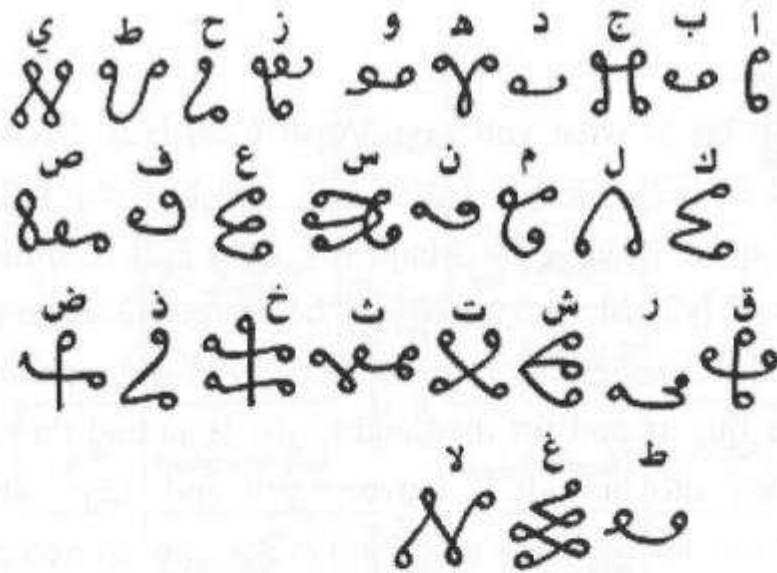 ا ب ج د ه و ز ح ط ي
ك ل م ن س ع ف ص
ق ر ش ت ث خ ذ ض
ط غ لا